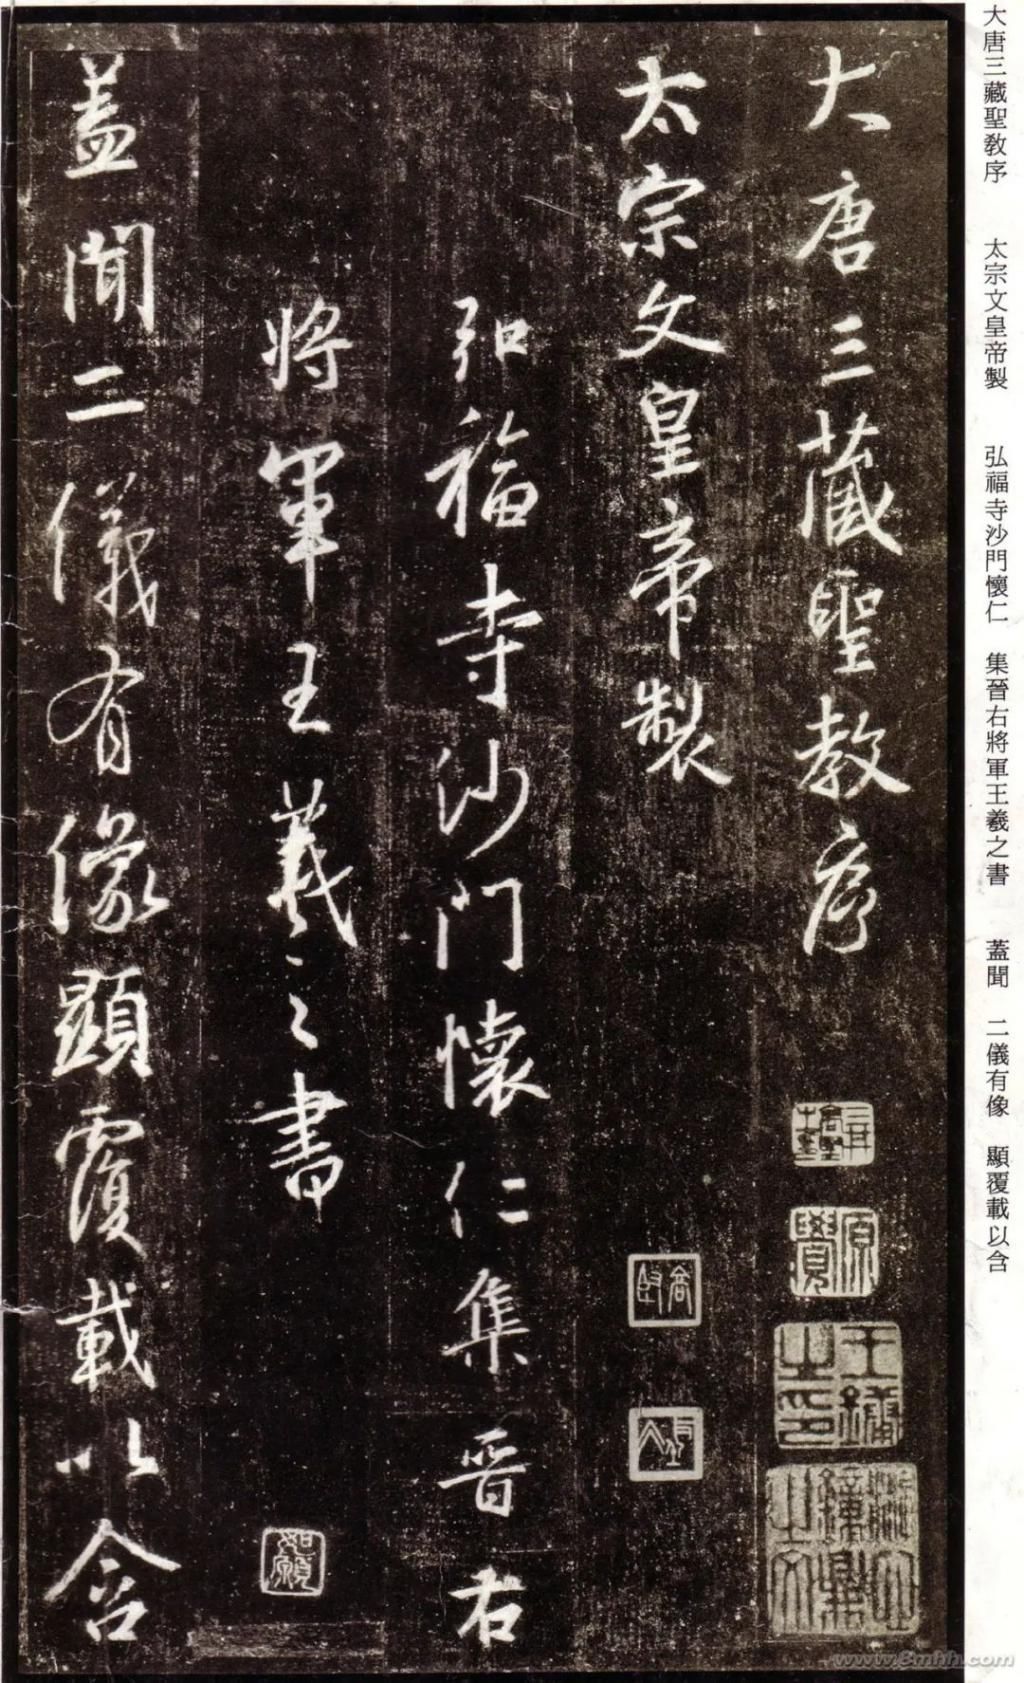 大唐三藏聖教序　太宗文皇帝製　弘福寺沙門懷仁　集晉右將軍王羲之書　蓋聞　二儀有像　顯覆載以含
大唐三藏聖教序
太宗文皇帝製
弘福寺沙門懷仁集晉右
將軍王羲之書
蓋聞二儀有像顯覆載以含
如願
www.8mhh.com